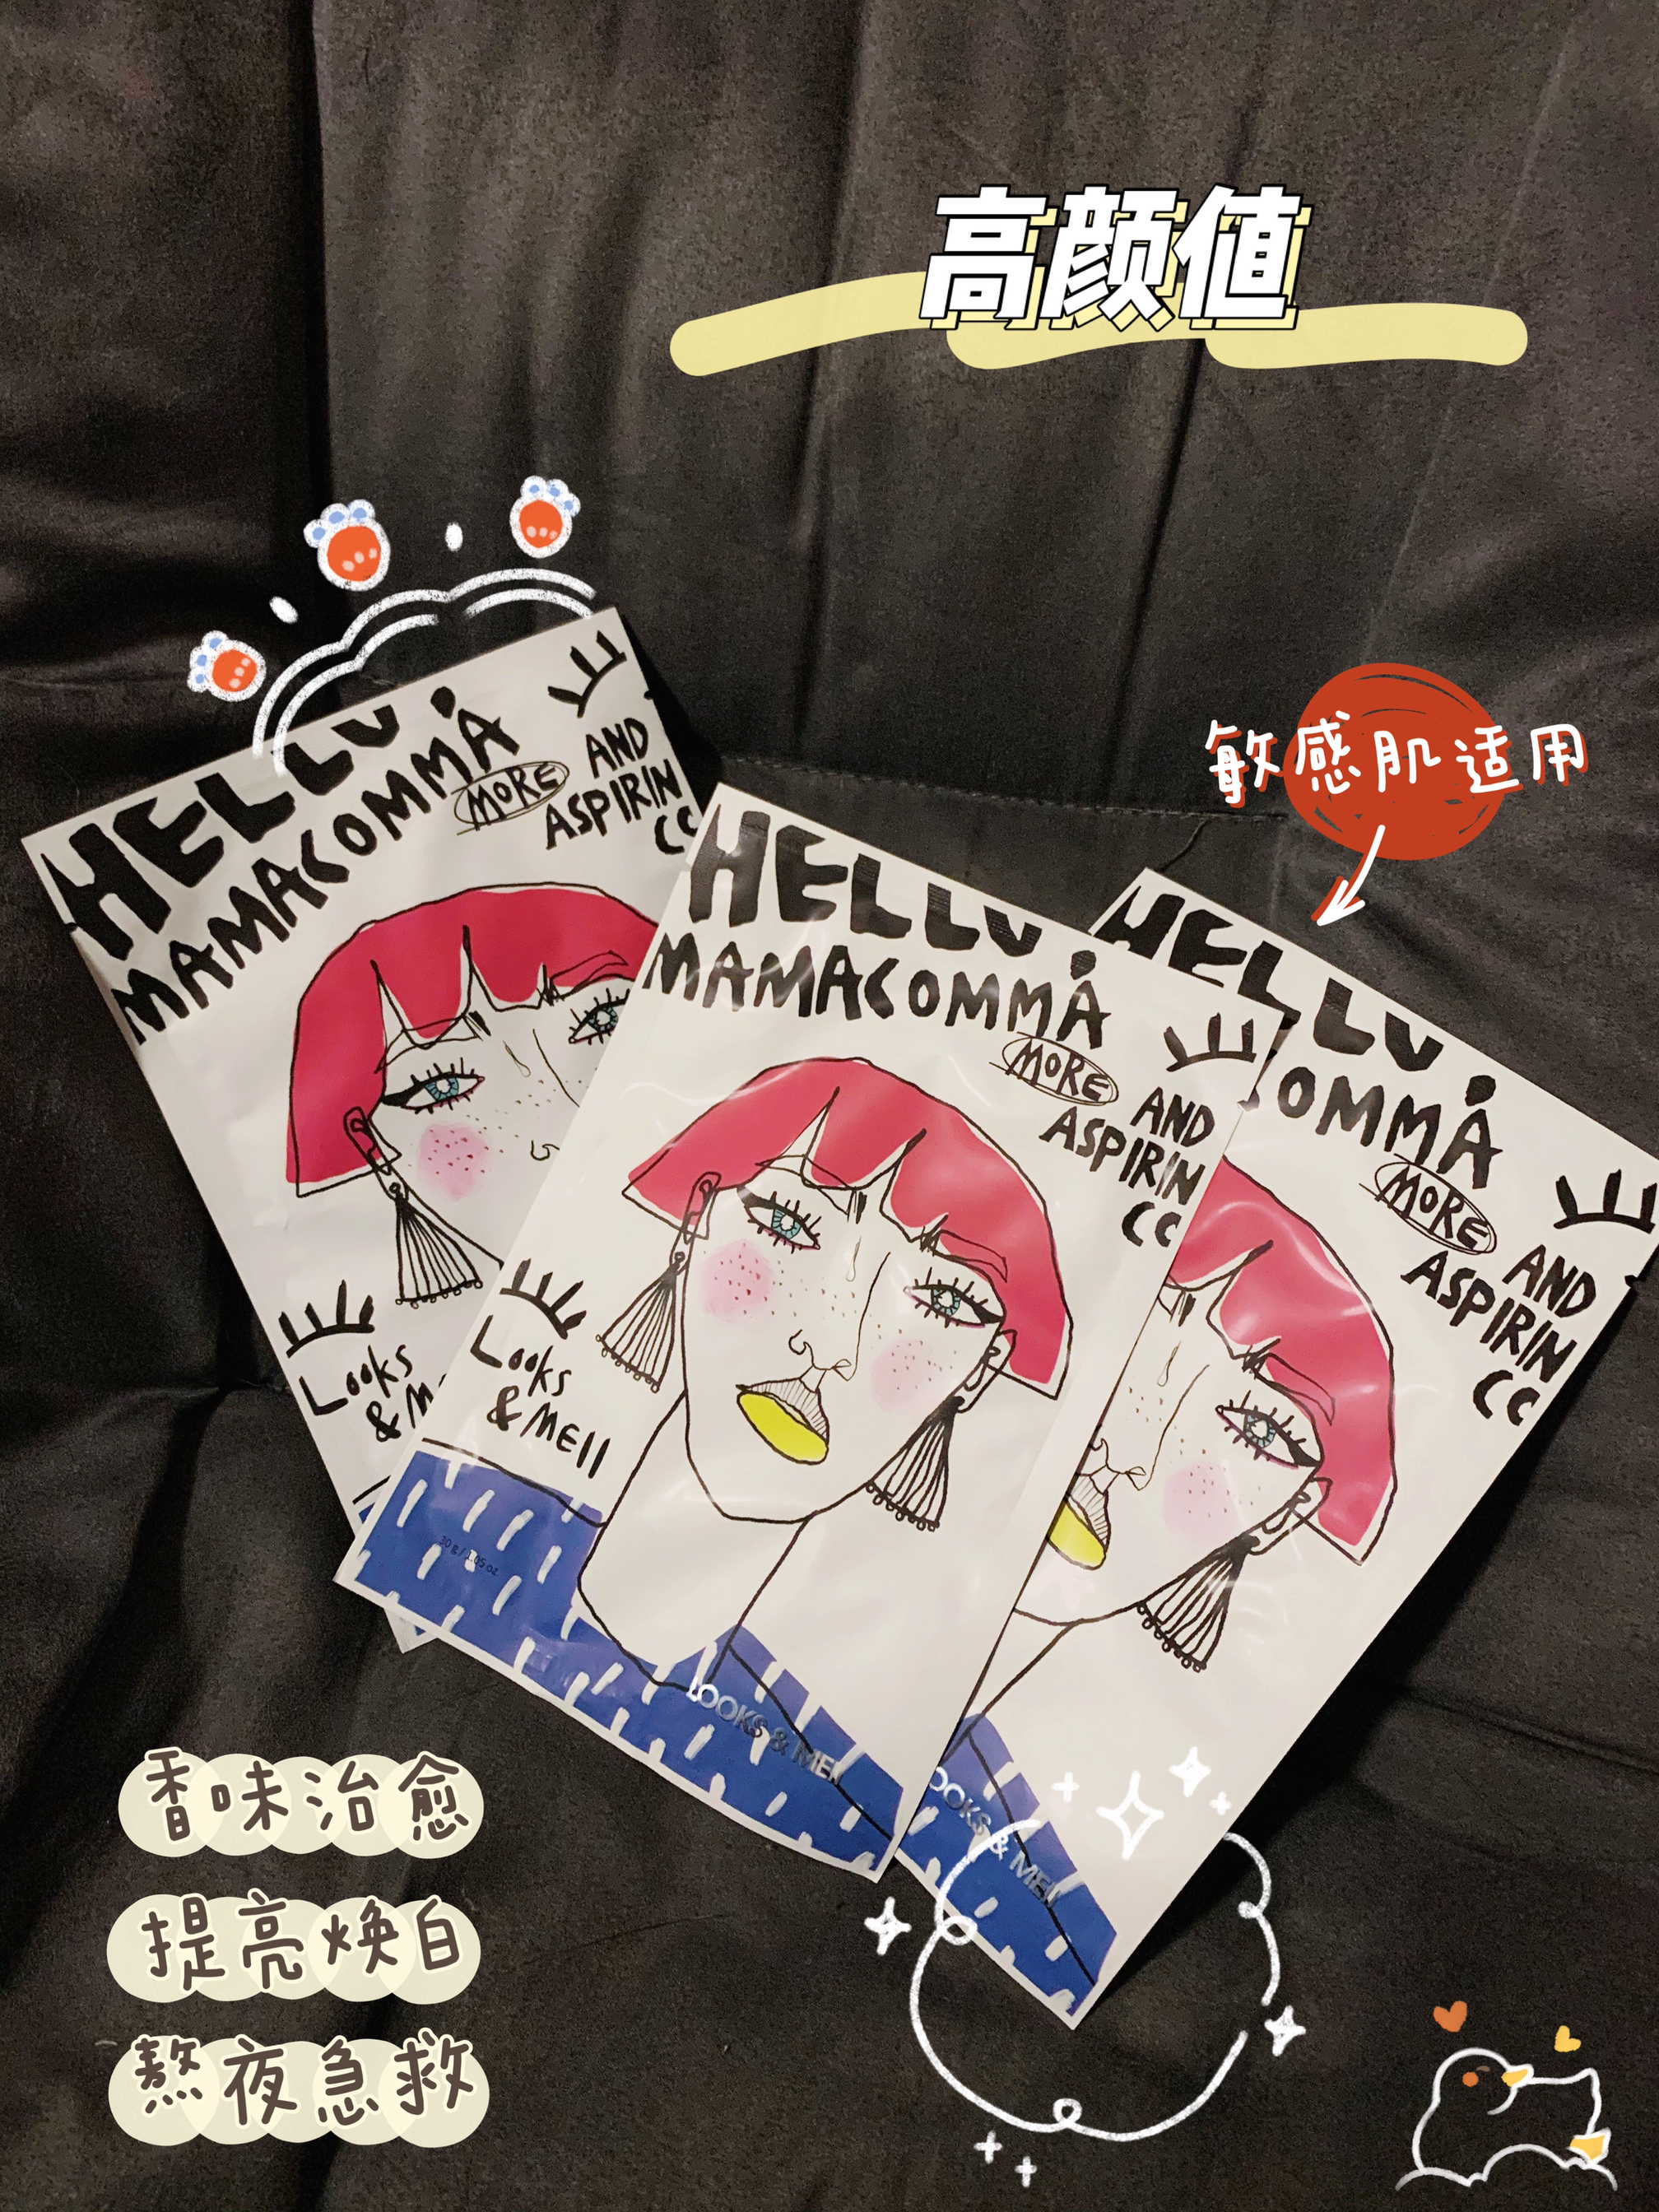 高颜值
敏感肌适用
HELLO
MAMACOMMA
MORE
AND
ASPIRIN
CC
Looks
&
HELLO
MAMACOMMA
MORE
AND
ASPIRIN
CC
Looks
& MEII
30 g / 1.05 oz
LOOKS & MEII
HELLO
OMMA
MORE
AND
ASPIRIN
CC
OOKS & MEII
香味治愈
提亮焕白
熬夜急救